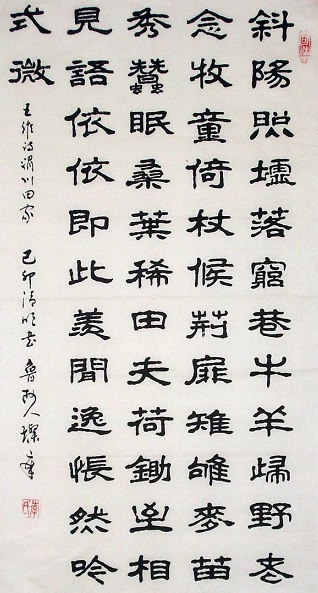 斜陽照墟落窮巷牛羊歸野老
念牧童倚杖候荊扉雉雊麥苗
秀蠶眠桑葉稀田夫荷鋤至相
見語依依即此羨閒逸悵然吟
式微
王維詩渭川田家 己卯清明書 魯人